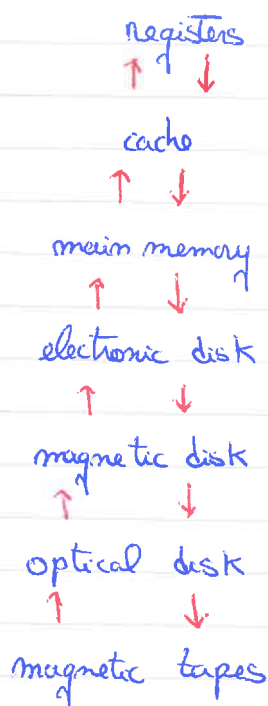 registers
cache
main memory
electronic disk
magnetic disk
optical disk
magnetic tapes